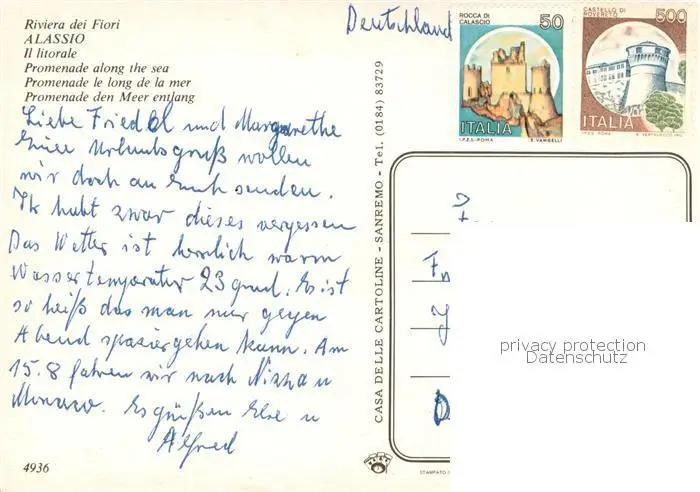 Riviera dei Fiori
ALASSIO
Il litorale
Promenade along the sea
Promenade le long de la mer
Promenade den Meer entlang
Liebe Friedel und Margarethe
Einen Urlaubsgruß wollen
wir doch an Euch senden.
Ihr habt zwar dieses vergessen
Das Wetter ist herrlich warm
Wassertemperatur 23 grad. Es ist
so heiß das man nur gegen
Abend spaziergehen kann. Am
15.8 fahren wir nach Nizza u
Monaco. Es grüßen Else u
Alfred
4936
CASA DELLE CARTOLINE - SANREMO - Tel. (0184) 83729
Deutschland
ROCCA DI
CALASCIO
50
ITALIA
I.P.Z.S.-ROMA
E. VANGELLI
CASTELLO DI
ROVERETO
500
ITALIA
I.P.Z.S. ROMA
D
privacy protection
Datenschutz
STAMPATO